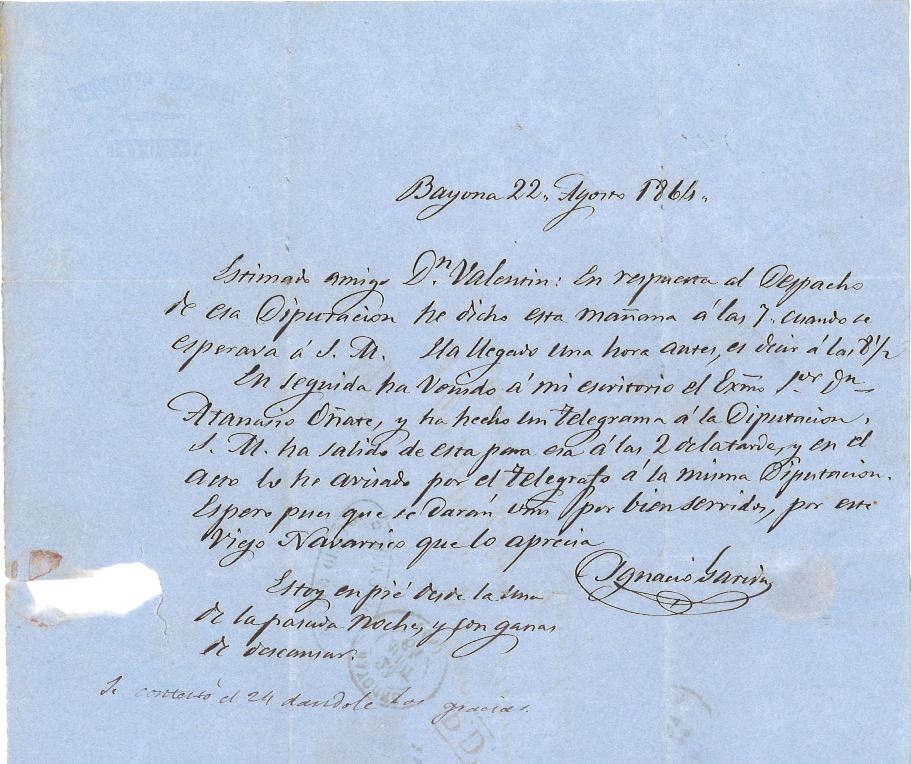 Bayona 22,, Agosto 1864,,
Estimado amigo Dn. Valentin: En respuesta al Despacho
de esa Diputacion he dicho esta mañana á las 7,, cuando se
esperava á S. M. Ha llegado una hora antes, es decir á las 8 1/2
En seguida ha Venido á mi escritorio el Exmo Sor Dn
Atanasio Oñate, y ha hecho un telegrama á la Diputacion,
S. M. ha salido de esta para esa á las 2 de la tarde, y en el
acto lo he avisado por el telegrafo á la misma Diputacion.
Espero pues que se darán Vms por bien servidos, por este
Viejo Navarrico que lo aprecia
Ignacio Garcia
Estoy en pié desde la una
de la pasada noche, y con ganas
de descansar.
Se contestó el 24 dandole las gracias.
DD